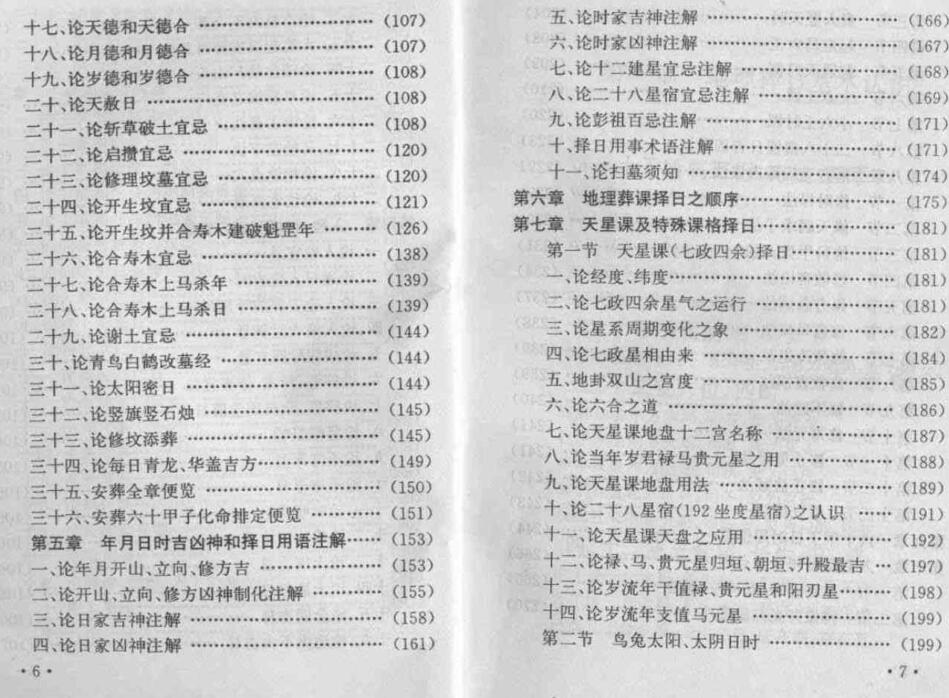 十七、论天德和天德合 …… (107)
十八、论月德和月德合 …… (107)
十九、论岁德和岁德合 …… (108)
二十、论天赦日 …… (108)
二十一、论斩草破土宜忌 …… (108)
二十二、论启攒宜忌 …… (120)
二十三、论修理坟墓宜忌 …… (120)
二十四、论开生坟宜忌 …… (121)
二十五、论开生坟并合寿木建破魁罡年 …… (126)
二十六、论合寿木宜忌 …… (138)
二十七、论合寿木上马杀年 …… (139)
二十八、论合寿木上马杀日 …… (139)
二十九、论谢土宜忌 …… (144)
三十、论青鸟白鹤改墓经 …… (144)
三十一、论太阳密日 …… (144)
三十二、论竖旗竖石烛 …… (145)
三十三、论修坟添葬 …… (145)
三十四、论每日青龙、华盖吉方 …… (149)
三十五、安葬全章便览 …… (150)
三十六、安葬六十甲子化命排定便览 …… (151)
第五章 年月日时吉凶神和择日用语注解 …… (153)
一、论年月开山、立向、修方吉 …… (153)
二、论开山、立向、修方凶神制化注解 …… (155)
三、论日家吉神注解 …… (158)
四、论日家凶神注解 …… (161)
·6·
五、论时家吉神注解 …… (166)
六、论时家凶神注解 …… (167)
七、论十二建星宜忌注解 …… (168)
八、论二十八星宿宜忌注解 …… (169)
九、论彭祖百忌注解 …… (171)
十、择日用事术语注解 …… (171)
十一、论扫墓须知 …… (174)
第六章 地理葬课择日之顺序 …… (175)
第七章 天星课及特殊课格择日 …… (181)
第一节 天星课(七政四余)择日 …… (181)
一、论经度、纬度 …… (181)
二、论七政四余星气之运行 …… (181)
三、论星系周期变化之象 …… (182)
四、论七政星相由来 …… (184)
五、地卦双山之宫度 …… (185)
六、论六合之道 …… (186)
七、论天星课地盘十二宫名称 …… (187)
八、论当年岁君禄马贵元星之用 …… (188)
九、论天星课地盘用法 …… (189)
十、论二十八星宿(192坐度星宿)之认识 …… (191)
十一、论天星课天盘之应用 …… (192)
十二、论禄、马、贵元星归垣、朝垣、升殿最吉 … (197)
十三、论岁流年干值禄、贵元星和阳刃星 …… (198)
十四、论岁流年支值马元星 …… (199)
第二节 鸟兔太阳、太阴日时 …… (199)
·7·